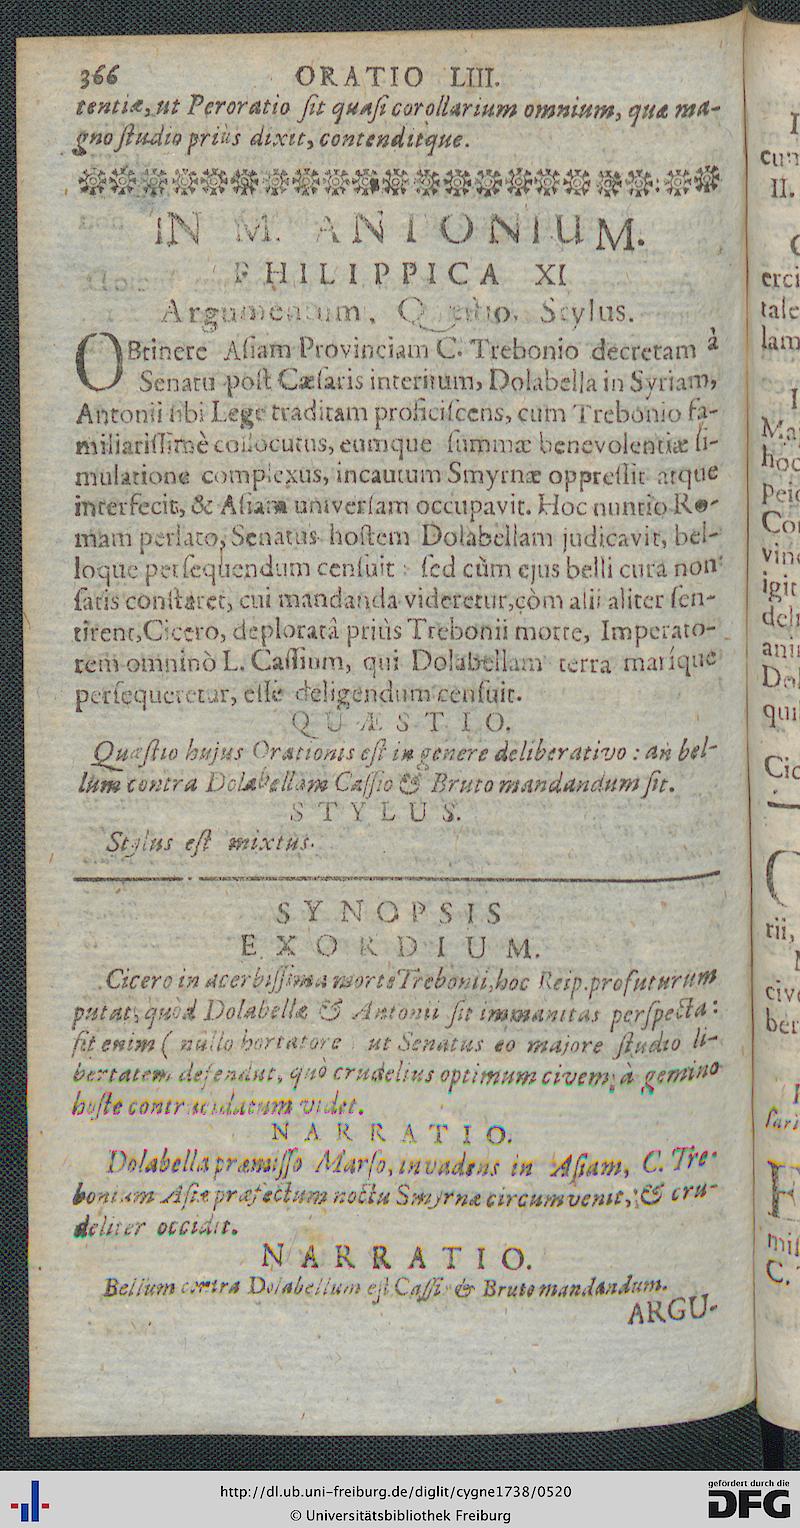 366 ORATIO LIII.
tentiæ, ut Peroratio ſit quaſi corollarium omnium, quæ ma-
gno ſtudio priùs dixit, contenditque.
IN M. ANTONIUM.
PHILIPPICA XI
Argumentum, Quæstio, Stylus.
OBtinere Aſiam Provinciam C. Trebonio decretam à
Senatu poſt Cæſaris interitum, Dolabella in Syriam,
Antonii ſibi Lege traditam proficiſcens, cum Trebonio fa-
miliariſſimè collocutus, eumque ſummæ benevolentiæ ſi-
mulatione complexus, incautum Smyrnæ oppreſſit atque
interfecit, & Aſiam univerſam occupavit. Hoc nuntio Ro-
mam perlato, Senatus hoſtem Dolabellam judicavit, bel-
loque perſequendum cenſuit : ſed cùm ejus belli cura non
ſatis conſtaret, cui mandanda videretur, còm alii aliter ſen-
tirent, Cicero, deploratâ priùs Trebonii morte, Imperato-
rem omninò L. Caſſium, qui Dolabellam terra maríque
perſequeretur, eſſe deligendum cenſuit.
QUÆSTIO.
Quæſtio hujus Orationis eſt in genere deliberativo : an bel-
lum contra Dolabellam Caſſio & Bruto mandandum ſit.
STYLUS.
Stylus eſt mixtus.
SYNOPSIS
EXORDIUM.
Cicero in acerbiſſima morte Trebonii, hoc Reip. profuturum
putat, quòd Dolabellæ & Antonii ſit immanitas perſpecta:
fit enim ( nullo hortatore ut Senatus eo majore ſtudio li-
bertatem defendat, quò crudelius optimum civem, à gemino
hoſte contrucidatum videt.
NARRATIO.
Dolabella præmiſſo Marſo, invadens in Aſiam, C. Tre-
bonium Aſiæ præfectum noctu Smyrnæ circumvenit, & cru-
deliter occidit.
NARRATIO.
Bellum contra Dolabellum eſt Caſſi & Bruto mandandum.
ARGU-
cum
II.
erci
tale
lam
hoc
vin
igit
ani
qui
Cic
rii,
cive
ber
ſari
miſ
C.
http://dl.ub.uni-freiburg.de/diglit/cygne1738/0520
© Universitätsbibliothek Freiburg
gefördert durch die
DFG